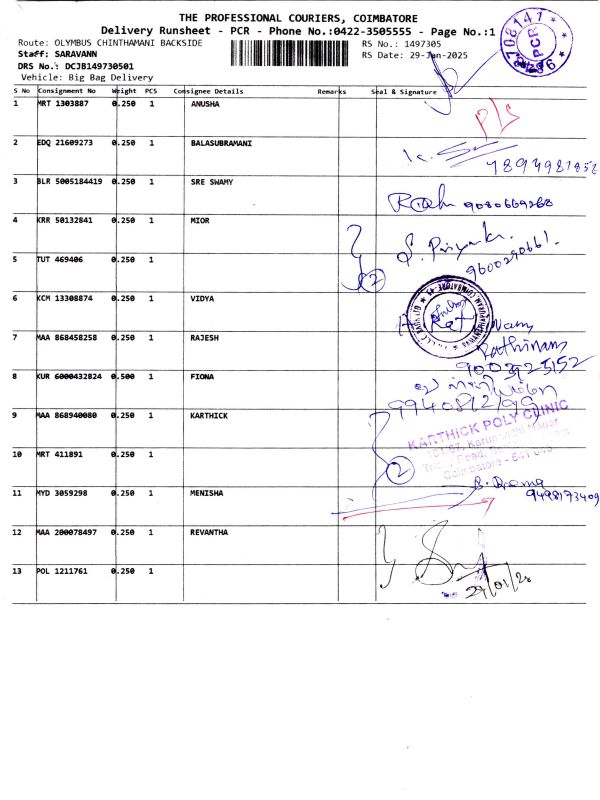 THE PROFESSIONAL COURIERS, COIMBATORE
Delivery Runsheet - PCR - Phone No.:0422-3505555 - Page No.:1
Route: OLYMBUS CHINTHAMANI BACKSIDE RS No.: 1497305
Staff: SARAVANN RS Date: 29-Jan-2025
DRS No.: DCJB149730501
Vehicle: Big Bag Delivery
708147
PCR
S No Consignment No Weight PCS Consignee Details Remarks Seal & Signature
1 MRT 1303887 0.250 1 ANUSHA P/S
2 EDQ 21609273 0.250 1 BALASUBRAMANI
3 BLR 5005184419 0.250 1 SRE SWAMY 9080669268
4 KRR 50132841 0.250 1 MIOR S. Priyanka.
5 TUT 469406 0.250 1 2 9600290661.
6 KCM 13308874 0.250 1 VIDYA
7 MAA 868458258 0.250 1 RAJESH Rathinam
9003925152
8 KUR 6000432824 0.500 1 FIONA
9940812199
9 MAA 868940080 0.250 1 KARTHICK KARTHICK POLY CLINIC
10 MRT 411891 0.250 1 2 Coimbatore - 641 045
11 MYD 3059298 0.250 1 MENISHA 9498173409
12 MAA 200078497 0.250 1 REVANTHA
13 POL 1211761 0.250 1